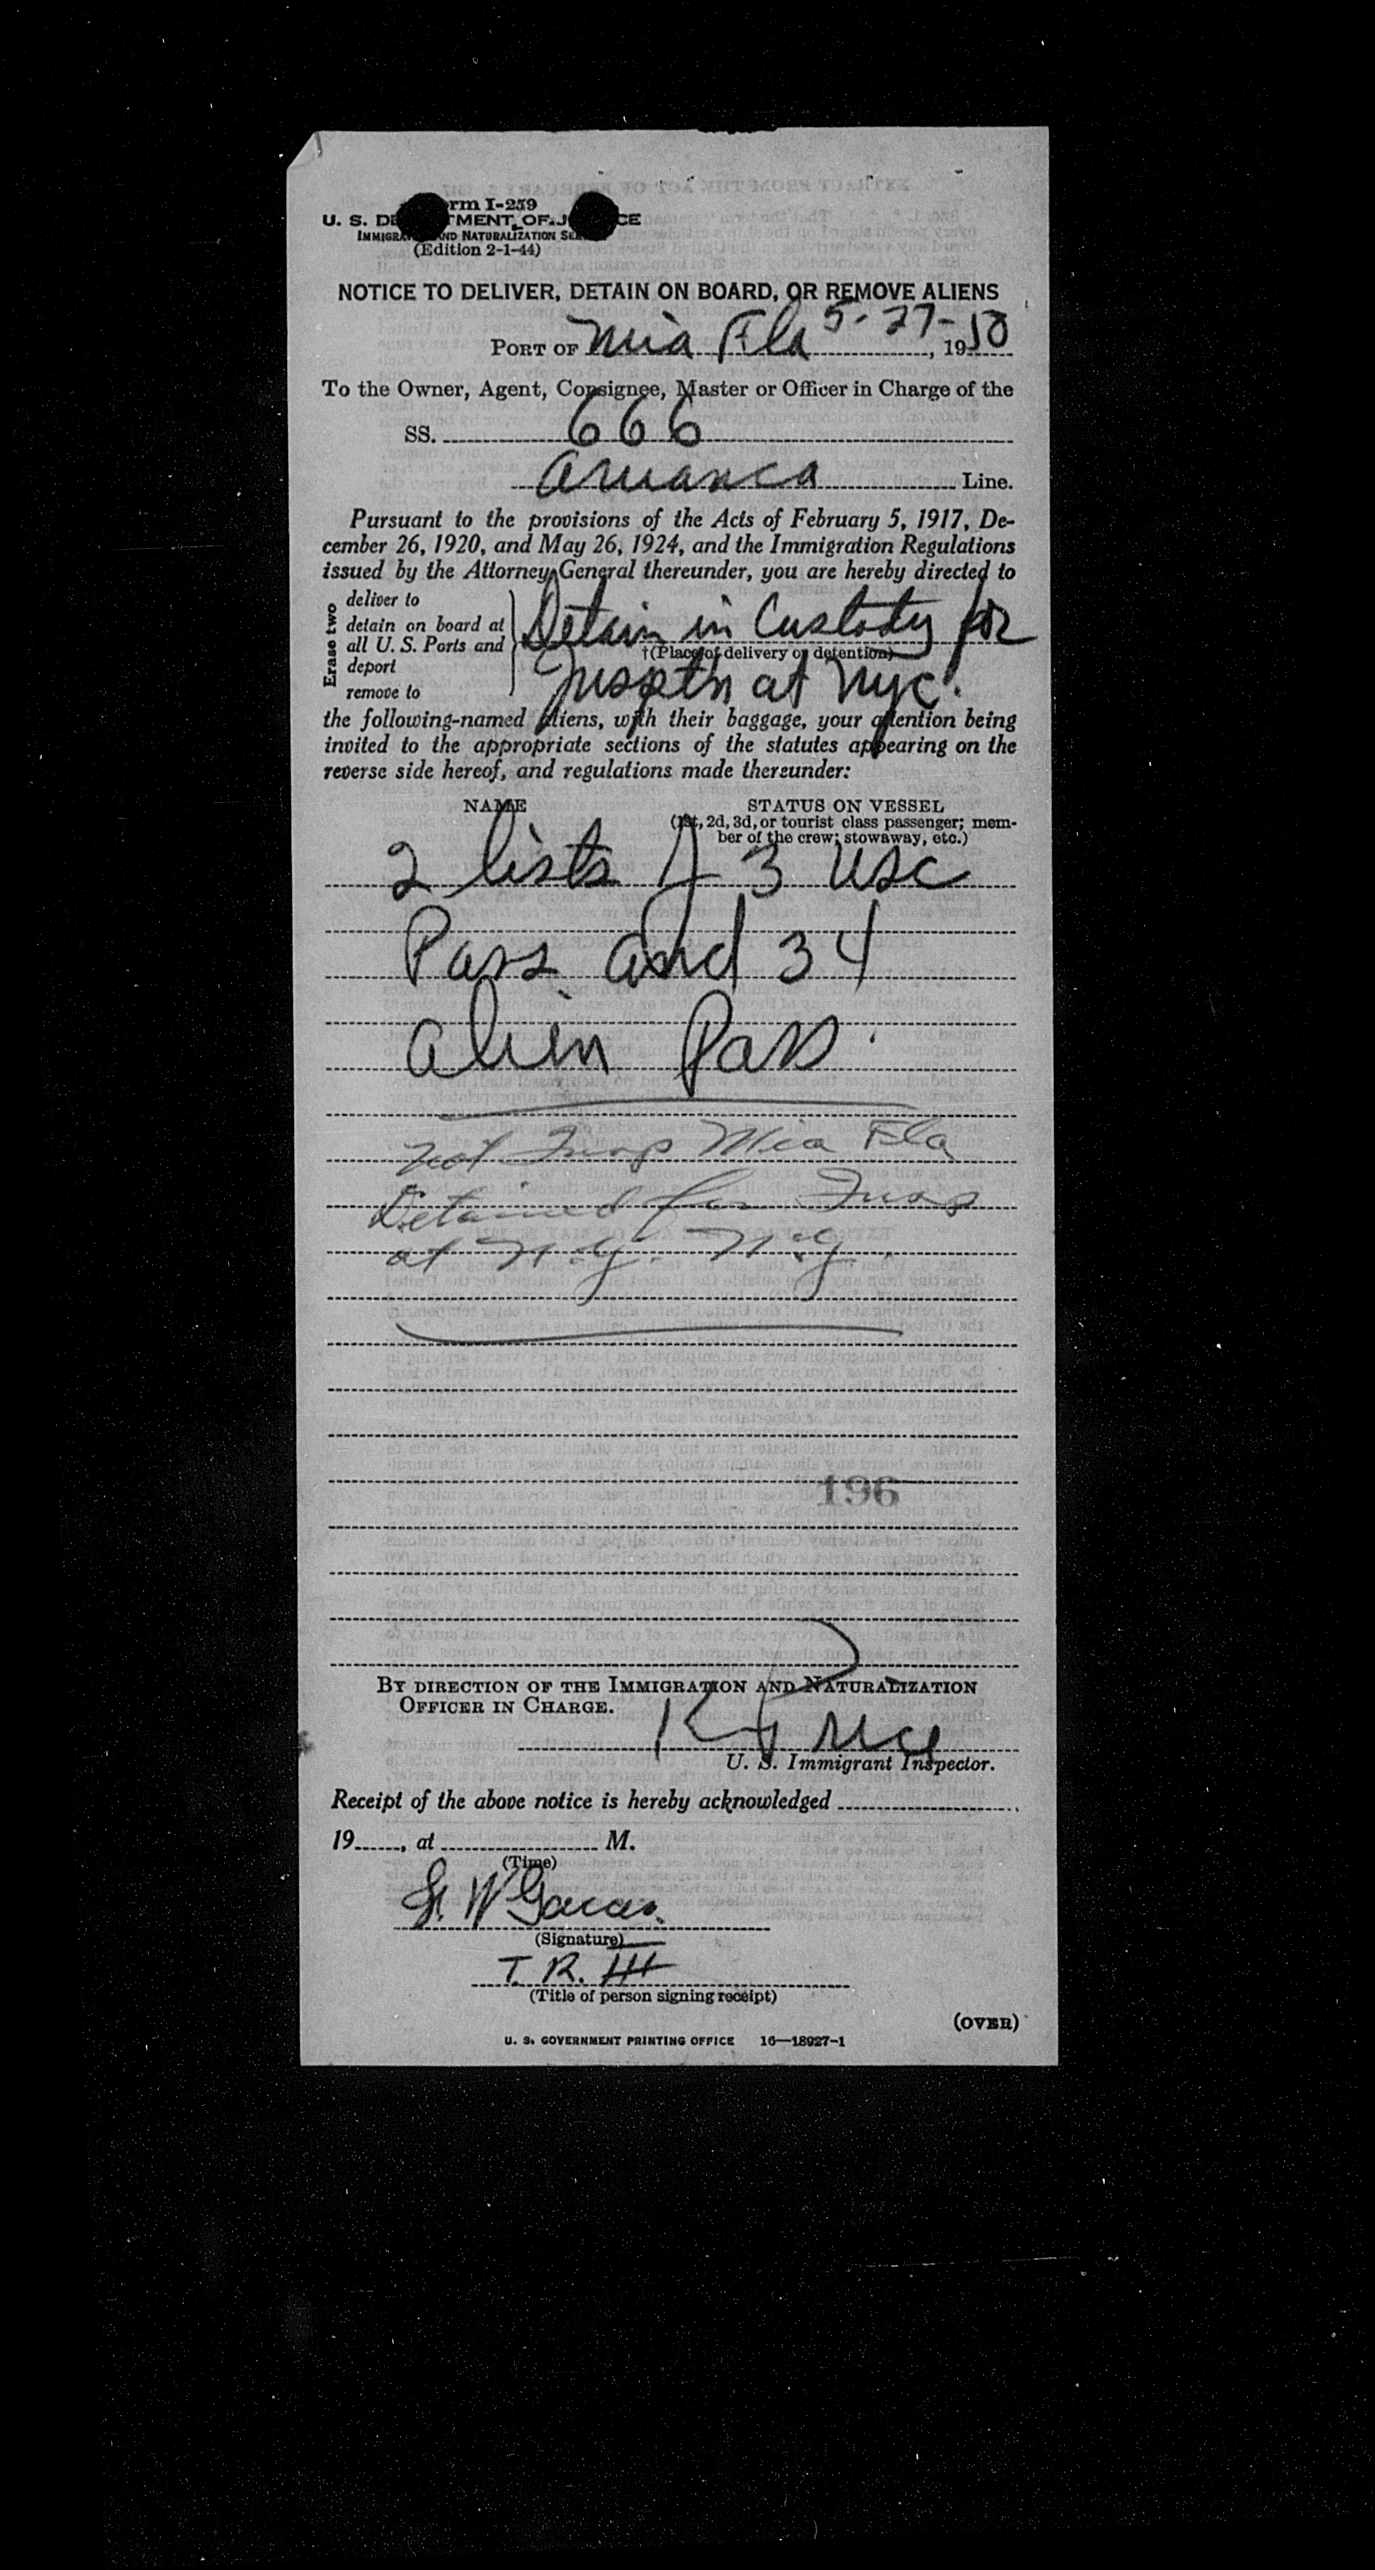 Form I-259
U. S. DEPARTMENT OF JUSTICE
IMMIGRATION AND NATURALIZATION SERVICE
(Edition 2-1-44)
NOTICE TO DELIVER, DETAIN ON BOARD, OR REMOVE ALIENS
PORT OF Mia Fla 5-27-, 1950
To the Owner, Agent, Consignee, Master or Officer in Charge of the
SS. 666
Line.
Pursuant to the provisions of the Acts of February 5, 1917, De-
cember 26, 1920, and May 26, 1924, and the Immigration Regulations
issued by the Attorney General thereunder, you are hereby directed to
Erase two
deliver to
detain on board at
all U. S. Ports and
deport
remove to
Detain in Custody for
†(Place of delivery or detention)
Insptn at NYC.
the following-named aliens, with their baggage, your attention being
invited to the appropriate sections of the statutes appearing on the
reverse side hereof, and regulations made thereunder:
NAME STATUS ON VESSEL
(1st, 2d, 3d, or tourist class passenger; mem-
ber of the crew; stowaway, etc.)
2 lists of 3 USC
Pass and 34
alien Pass.
Not Insp Mia Fla
Detained for Insp
at N.Y. N.Y.
196
BY DIRECTION OF THE IMMIGRATION AND NATURALIZATION
OFFICER IN CHARGE.
U. S. Immigrant Inspector.
Receipt of the above notice is hereby acknowledged
19, at M.
(Time)
(Signature)
T. R. III
(Title of person signing receipt)
(OVER)
U. S. GOVERNMENT PRINTING OFFICE 16—18927-1